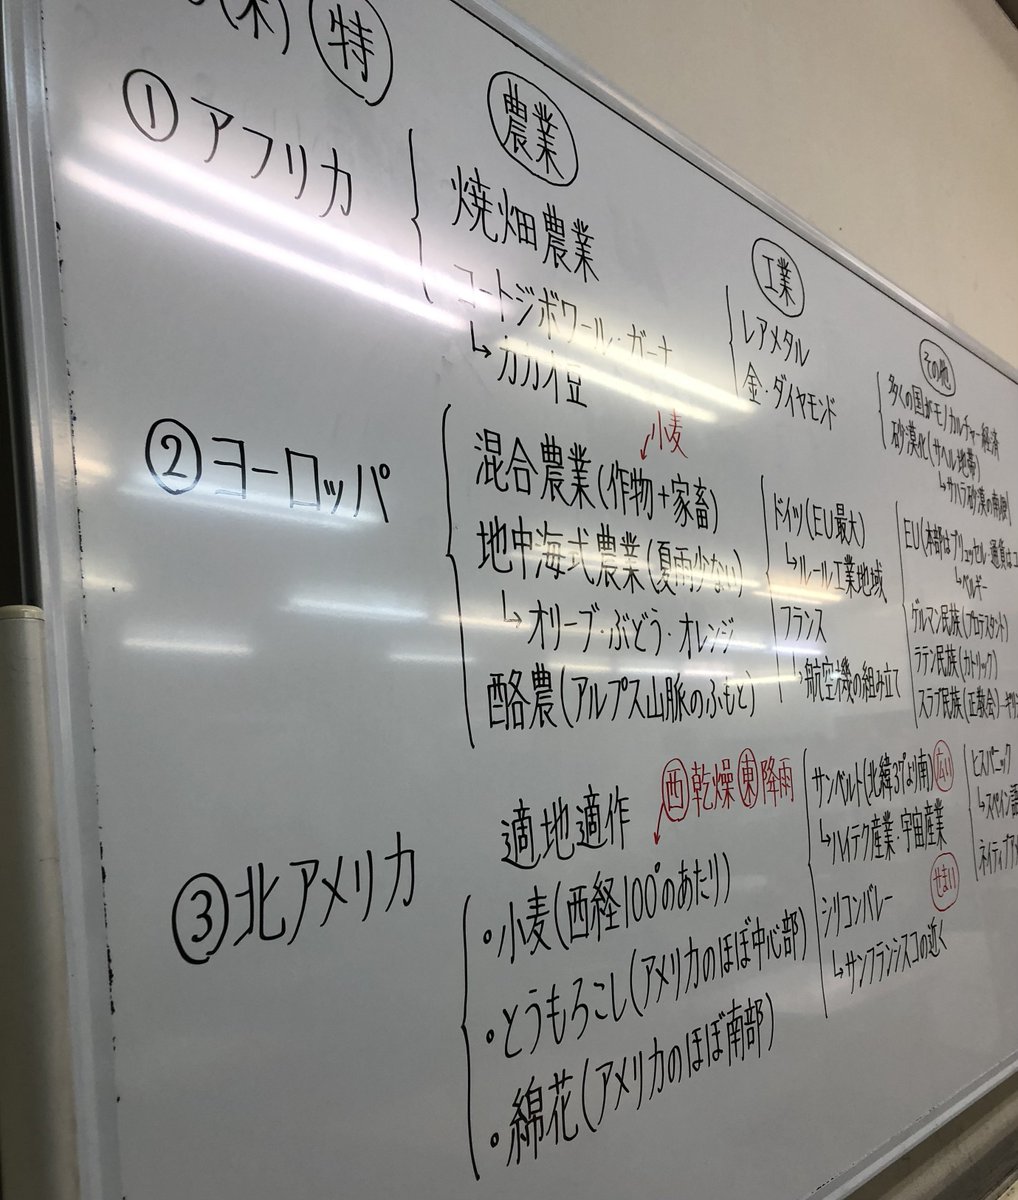 (木) 特
農業
工業
その他
① アフリカ
焼畑農業
コートジボワール・ガーナ
↳カカオ豆
レアメタル
金・ダイヤモンド
多くの国がモノカルチャー経済
砂漠化(サヘル地帯)
↳サハラ砂漠の南側
② ヨーロッパ
小麦
混合農業(作物+家畜)
地中海式農業(夏雨少ない)
↳オリーブ・ぶどう・オレンジ
酪農(アルプス山脈のふもと)
ドイツ(EU最大)
↳ルール工業地域
フランス
↳航空機の組み立て
EU(本部はブリュッセル・通貨はユ
↳ベルギー
ゲルマン民族(プロテスタント)
ラテン民族(カトリック)
スラブ民族(正教会)ーギリシ
③ 北アメリカ
適地適作
西乾燥 東降雨
・小麦(西経100°のあたり)
・とうもろこし(アメリカのほぼ中心部)
・綿花(アメリカのほぼ南部)
サンベルト(北緯37°より南) 広い
↳ハイテク産業・宇宙産業
せまい
シリコンバレー
↳サンフランシスコの近く
ヒスパニック
↳スペイン語
ネイティブアメ